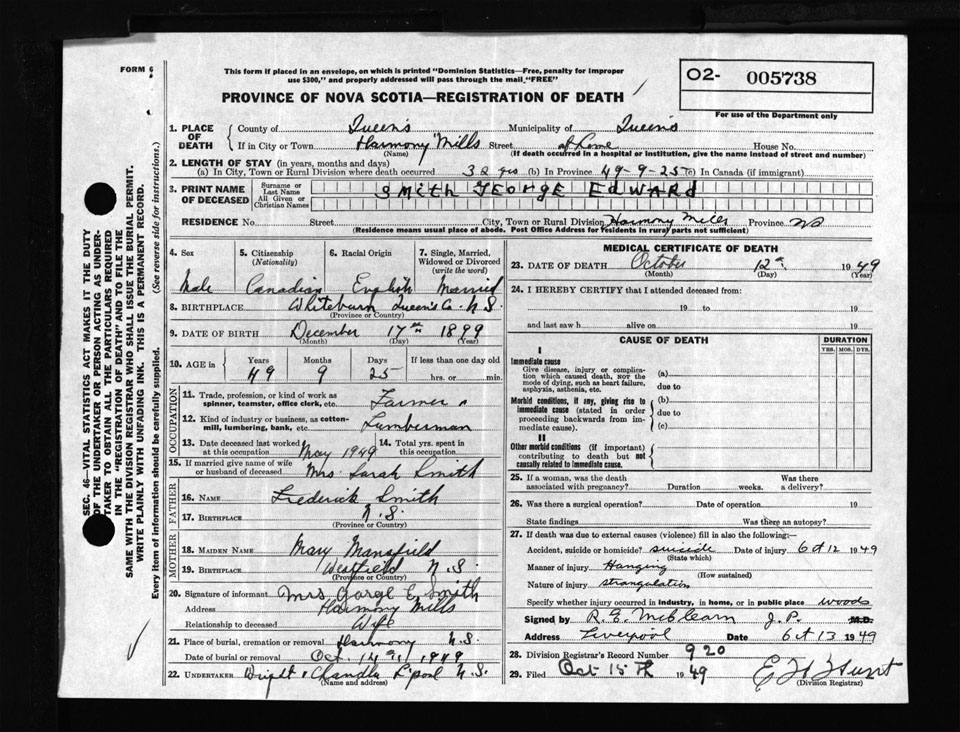 FORM 6
This form if placed in an envelope, on which is printed "Dominion Statistics—Free, penalty for improper
use $300," and properly addressed will pass through the mail "FREE"
O2- 005738
For use of the Department only
PROVINCE OF NOVA SCOTIA—REGISTRATION OF DEATH
SEC. 46—VITAL STATISTICS ACT MAKES IT THE DUTY
OF THE UNDERTAKER OR PERSON ACTING AS UNDER-
TAKER TO OBTAIN ALL THE PARTICULARS REQUIRED
IN THE "REGISTRATION OF DEATH" AND TO FILE THE
SAME WITH THE DIVISION REGISTRAR WHO SHALL ISSUE THE BURIAL PERMIT.
WRITE PLAINLY WITH UNFADING INK. THIS IS A PERMANENT RECORD.
Every item of information should be carefully supplied. (See reverse side for instructions.)
1. PLACE OF DEATH County of Queen's Municipality of Queen's
If in City or Town Harmony Mills Street at home House No.
(Name) (If death occurred in a hospital or institution, give the name instead of street and number)
2. LENGTH OF STAY (in years, months and days)
(a) In City, Town or Rural Division where death occurred 32 yrs (b) In Province 49-9-25 (c) In Canada (if immigrant)
3. PRINT NAME OF DECEASED Surname or Last Name All Given or Christian Names SMITH GEORGE EDWARD
RESIDENCE No. Street City, Town or Rural Division Harmony Mills Province NS
(Residence means usual place of abode. Post Office Address for residents in rural parts not sufficient)
4. Sex 5. Citizenship (Nationality) 6. Racial Origin 7. Single, Married, Widowed or Divorced (write the word)
Male Canadian English Married
8. BIRTHPLACE Whiteburn Queen's Co. N.S.
(Province or Country)
9. DATE OF BIRTH December 17th 1899
(Month) (Day) (Year)
10. AGE in Years Months Days If less than one day old
49 9 25 hrs. or min.
OCCUPATION
11. Trade, profession, or kind of work as spinner, teamster, office clerk, etc. Farmer
12. Kind of industry or business, as cotten-mill, lumbering, bank, etc. Lumberman
13. Date deceased last worked at this occupation May 1949 14. Total yrs. spent in this occupation
15. If married give name of wife or husband of deceased Mrs. Sarah Smith
FATHER
16. NAME Frederick Smith
17. BIRTHPLACE N.S.
(Province or Country)
MOTHER
18. MAIDEN NAME Mary Mansfield
19. BIRTHPLACE Westfield N.S.
(Province or Country)
20. Signature of informant Mrs George E. Smith
Address Harmony Mills
Relationship to deceased Wife
21. Place of burial, cremation or removal Harmony N.S.
Date of burial or removal Oct. 14 1949
22. UNDERTAKER Wright & Chandler L'pool N.S.
(Name and address)
MEDICAL CERTIFICATE OF DEATH
23. DATE OF DEATH October 12 1949
(Month) (Day) (Year)
24. I HEREBY CERTIFY that I attended deceased from:
19 to 19
and last saw h alive on 19
CAUSE OF DEATH DURATION
YRS. MOS. DYS.
I
Immediate cause
Give disease, injury or complication which caused death, not the mode of dying, such as heart failure, asphyxia, asthenia, etc.
(a)
due to
Morbid conditions, if any, giving rise to immediate cause (stated in order proceeding backwards from immediate cause).
(b)
due to
(c)
II
Other morbid conditions (if important) contributing to death but not causally related to immediate cause.
25. If a woman, was the death associated with pregnancy? Duration weeks. Was there a delivery?
26. Was there a surgical operation? Date of operation 19
State findings Was there an autopsy?
27. If death was due to external causes (violence) fill in also the following:-
Accident, suicide or homicide? suicide Date of injury Oct 12 1949
(State which)
Manner of injury Hanging
(How sustained)
Nature of injury strangulation
Specify whether injury occurred in industry, in home, or in public place woods
Signed by R.E. McClearn J.P. M.D.
Address Liverpool Date Oct 13 1949
28. Division Registrar's Record Number 920
29. Filed Oct 15th 1949 E H Hunt
(Division Registrar)